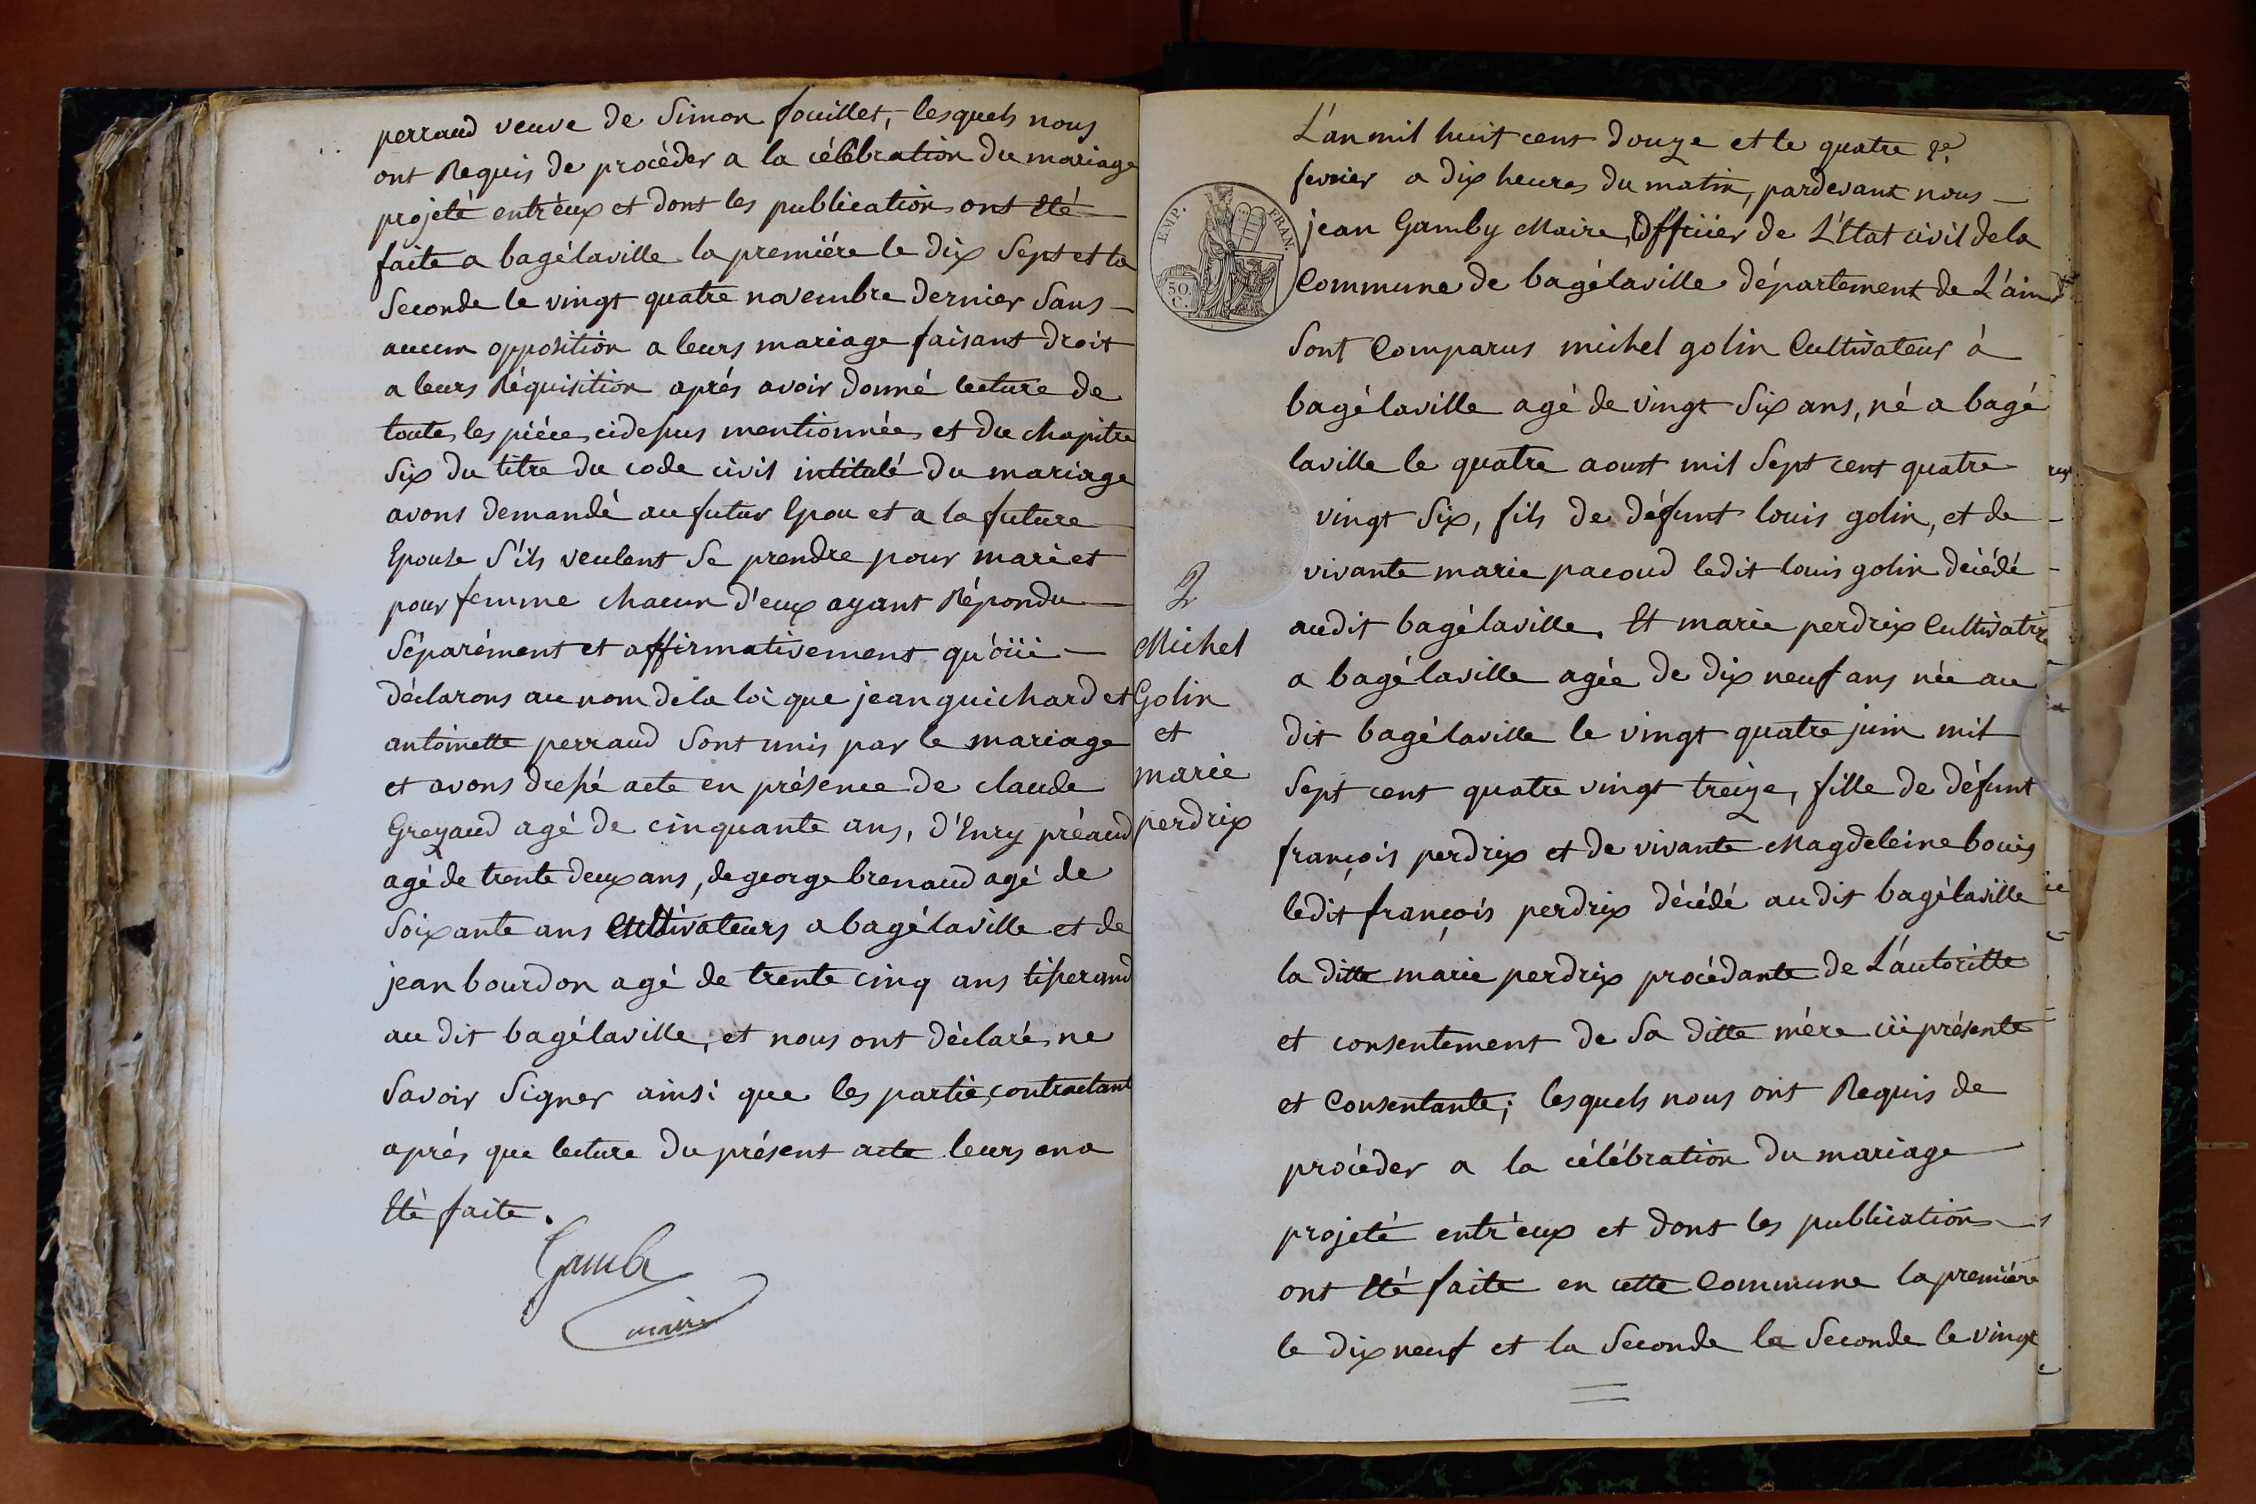 perraud veuve de Simon fouillet, lesquels nous
ont Requis de procéder a la célébration du mariage
projeté entr'eux et dont les publications ont été
faite a bagélaville la premiére le dix Sept et la
Seconde le vingt quatre novembre dernier Sans
aucun opposition a leurs mariage faisant droit
a leurs Réquisition aprés avoir donné lecture de
toutes les piéces cidessus mentionnées et du chapitre
Six du titre du code civil intitulé du mariage
avons demandé au futur Epou et a la future
Epouse S'ils veulent Se prendre pour mari et
pour femme chacun d'eux ayant Répondu
Séparément et affirmativement qu'oüi
déclarons au nom de la loi que jean guichard et
antoinette perraud Sont unis par le mariage
et avons dressé acte en présence de claude
agé de cinquante ans, d'Enry préaud
agé de trente deux ans, de george brenaud agé de
Soixante ans Cultivateurs a bagélaville et de
jean bourdon agé de trente cinq ans tisserand
au dit bagélaville, et nous ont déclarés ne
Savoir Signer ainsi que les parties contractant
aprés que lecture du présent acte leurs en a
Eté faite.
Gamby
maire
2
Michel
Golin
et
marie
perdrix
EMP. FRAN.
50
C.
L'an mil huit cent douze et le quatre
fevrier a dix heures du matin, pardevant nous
jean Gamby Maire, Officier de L'Etat civil de la
Commune de bagélaville département de L'ain
Sont Comparus michel golin Cultivateur à
bagélaville agé de vingt Six ans, né a bagé
laville le quatre aoust mil Sept cent quatre
vingt Six, fils de défunt louis golin, et de
vivante marie pacoud ledit louis golin décédé
audit bagélaville. Et marie perdrix Cultivatrice
a bagélaville agée de dix neuf ans née au
dit bagélaville le vingt quatre juin mil
Sept cent quatre vingt treize, fille de défunt
françois perdrix et de vivante Magdeleine
ledit françois perdrix décédé au dit bagélaville
la ditte marie perdrix procédante de L'autoritte
et consentement de Sa ditte mére cii présente
et Consentante; lesquels nous ont Requis de
procéder a la célébration du mariage
projeté entr'eux et dont les publications
ont Eté faite en cette Commune la premiére
le dix neuf et la Seconde la Seconde le vingt